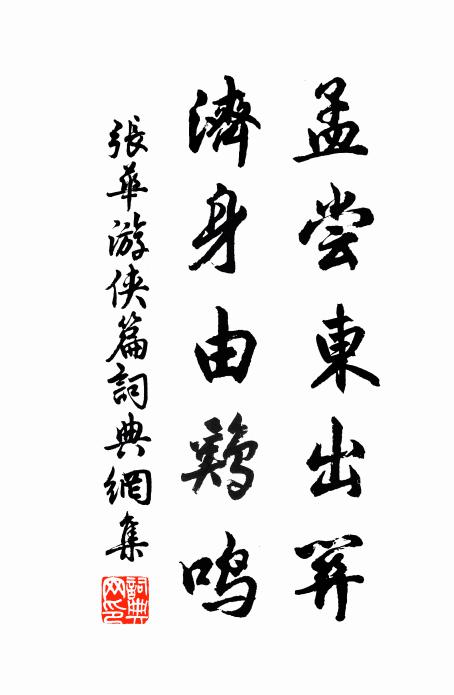 孟尝東出關
濟身由鷄鸣
張華游侠篇詞典網集
詞典网印